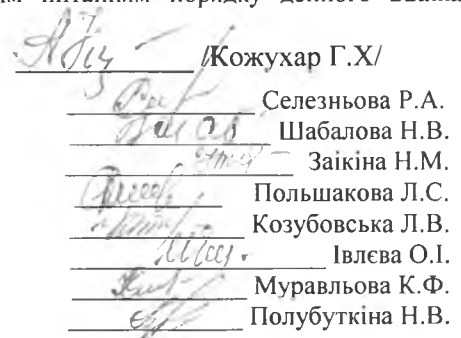 питанням порядку денного
/Кожухар Г.Х/
Селезньова Р.А.
Шабалова Н.В.
Заікіна Н.М.
Польшакова Л.С.
Козубовська Л.В.
Івлєва О.І.
Муравльова К.Ф.
Полубуткіна Н.В.